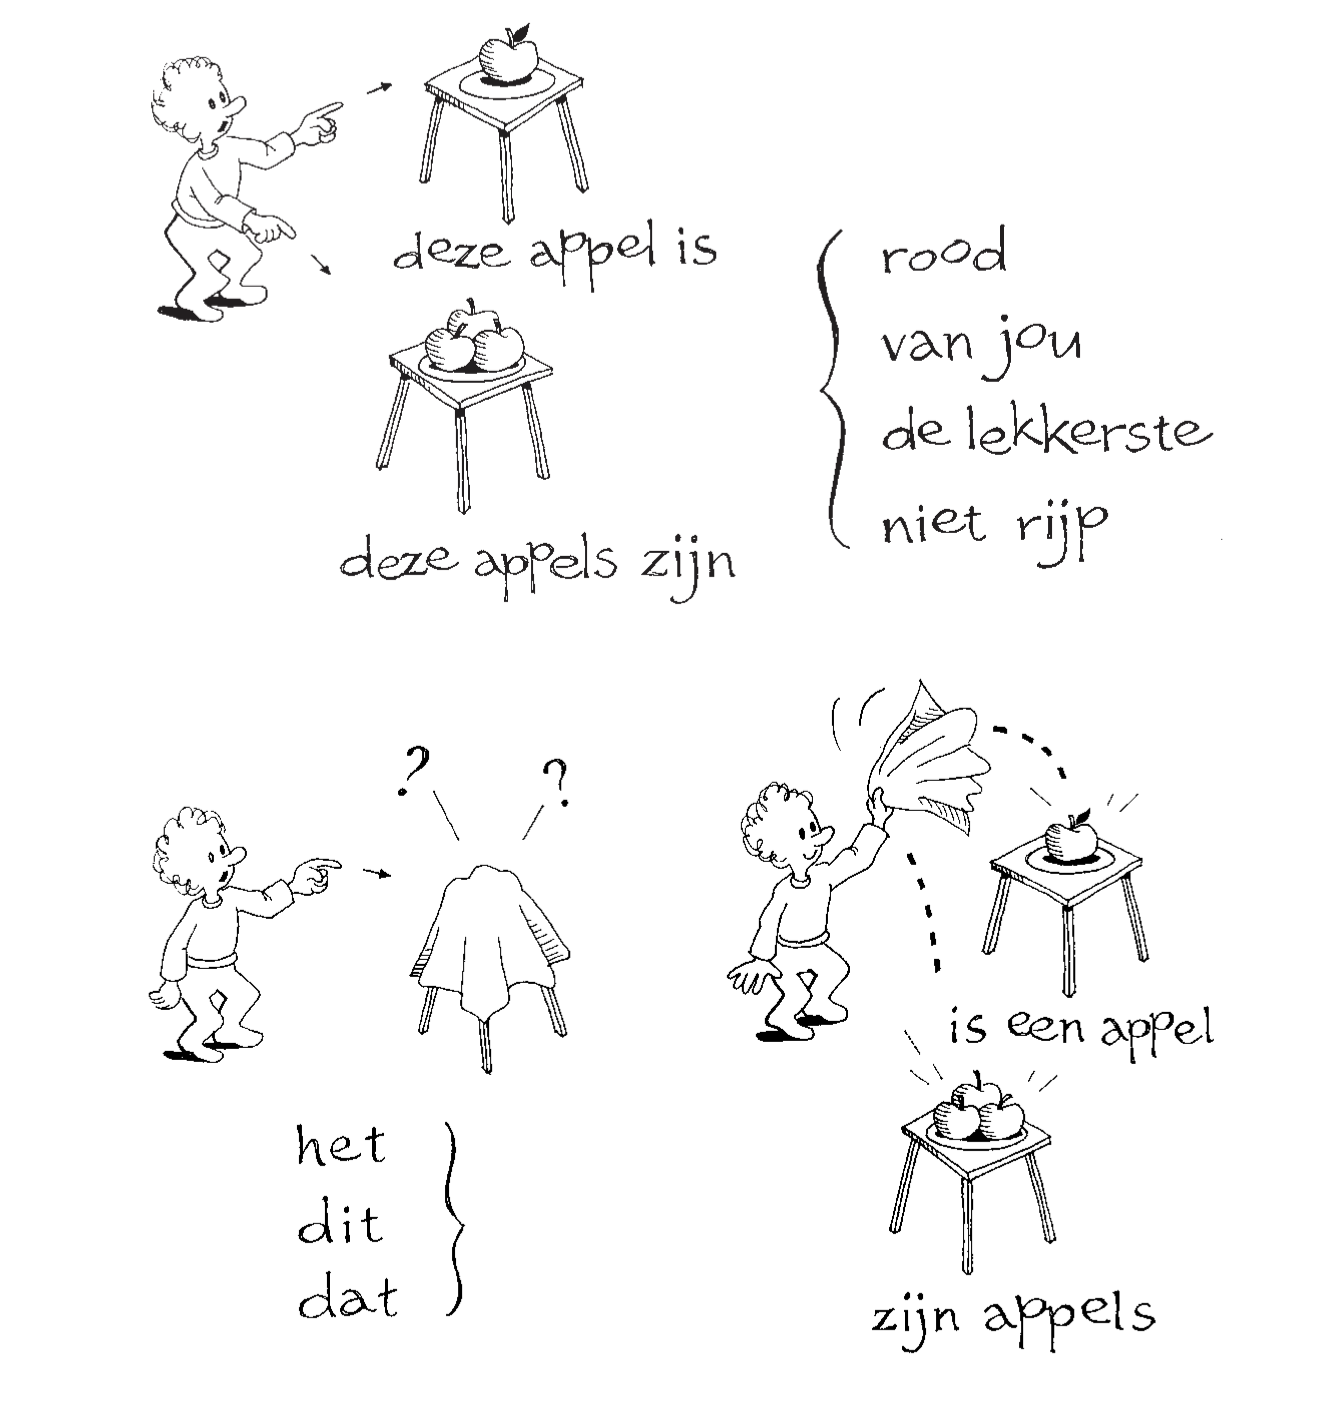 deze appel is
deze appels zijn
rood
van jou
de lekkerste
niet rijp
? ?
het
dit
dat
is een appel
zijn appels